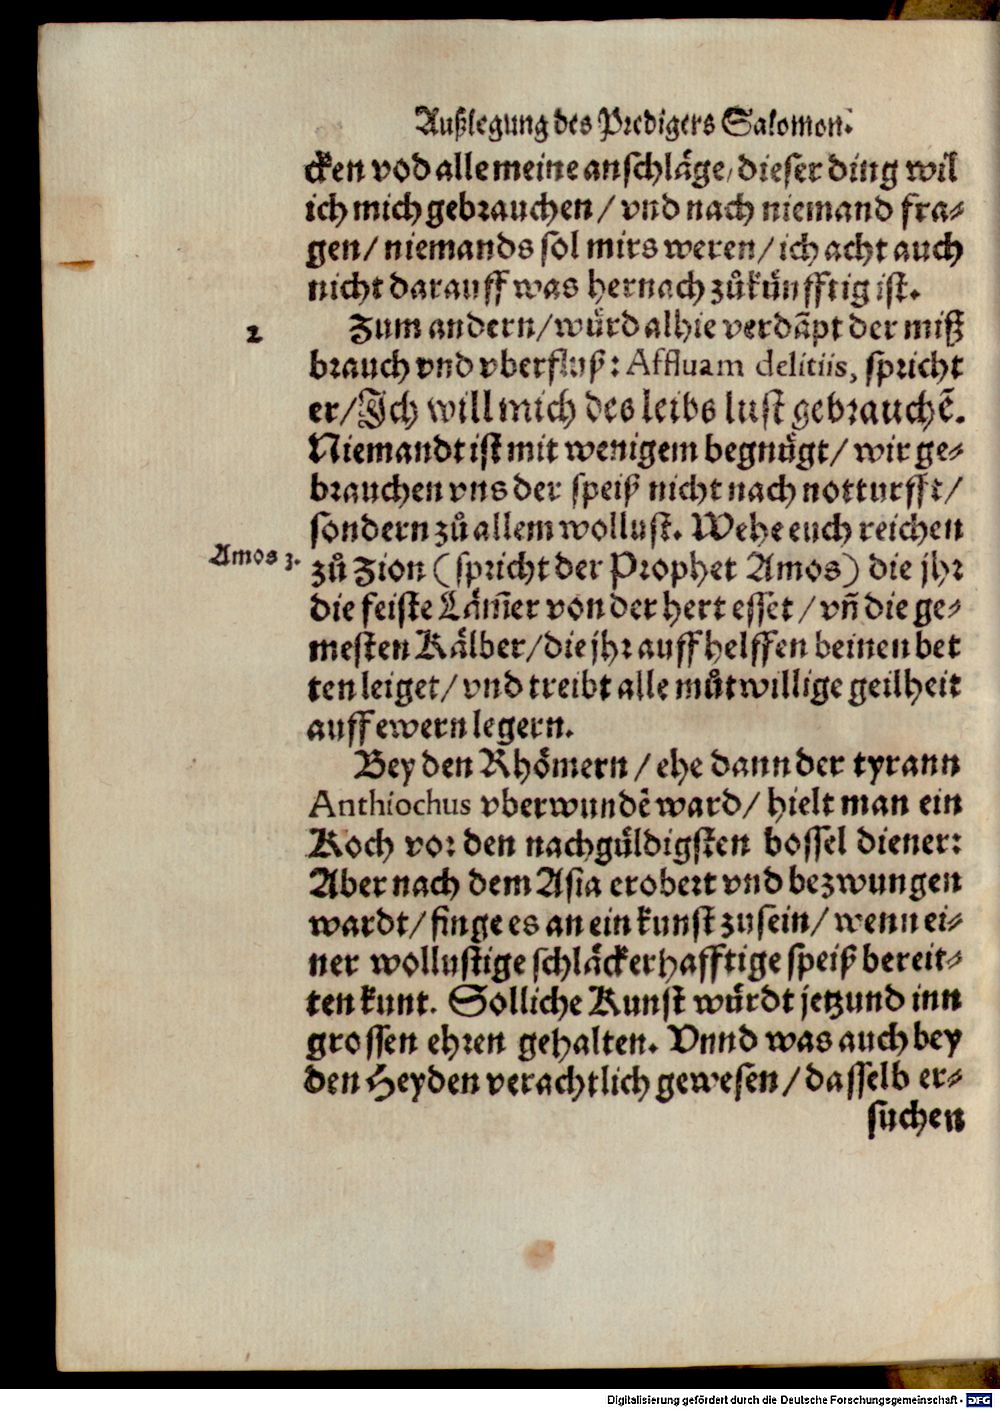 Außlegung des Predigers Salomon.
cken vod alle meine anschläge, dieser ding wil
ich mich gebrauchen / vnd nach niemand fra-
gen / niemands sol mirs weren / ich acht auch
nicht darauff was hernach zůkünfftig ist.
2
Zum andern / würd alhie verdãpt der miß
brauch vnd vberfluß: Affluam delitiis, spricht
er / Ich will mich des leibs lust gebrauchẽ.
Niemandt ist mit wenigem begnügt / wir ge-
brauchen vns der speiß nicht nach notturfft /
sondern zů allem wollust. Wehe euch reichen
Amos 3.
zů Zion (spricht der Prophet Amos) die jhr
die feiste Läm̃er von der hert esset / vñ die ge-
mesten Kälber / die jhr auff helffen beinen bet
ten leiget / vnd treibt alle můtwillige geilheit
auff ewern legern.
Bey den Rhömern / ehe dann der tyrann
Anthiochus vberwundẽ ward / hielt man ein
Koch vor den nachgüldigsten bossel diener:
Aber nach dem Asia erobert vnd bezwungen
wardt / finge es an ein kunst zu sein / wenn ei-
ner wollustige schläckerhafftige speiß bereit-
ten kunt. Solliche Kunst würdt jetzund inn
grossen ehren gehalten. Vnnd was auch bey
den Heyden verachtlich gewesen / dasselb er-
suchen
Digitalisierung gefördert durch die Deutsche Forschungsgemeinschaft - DFG